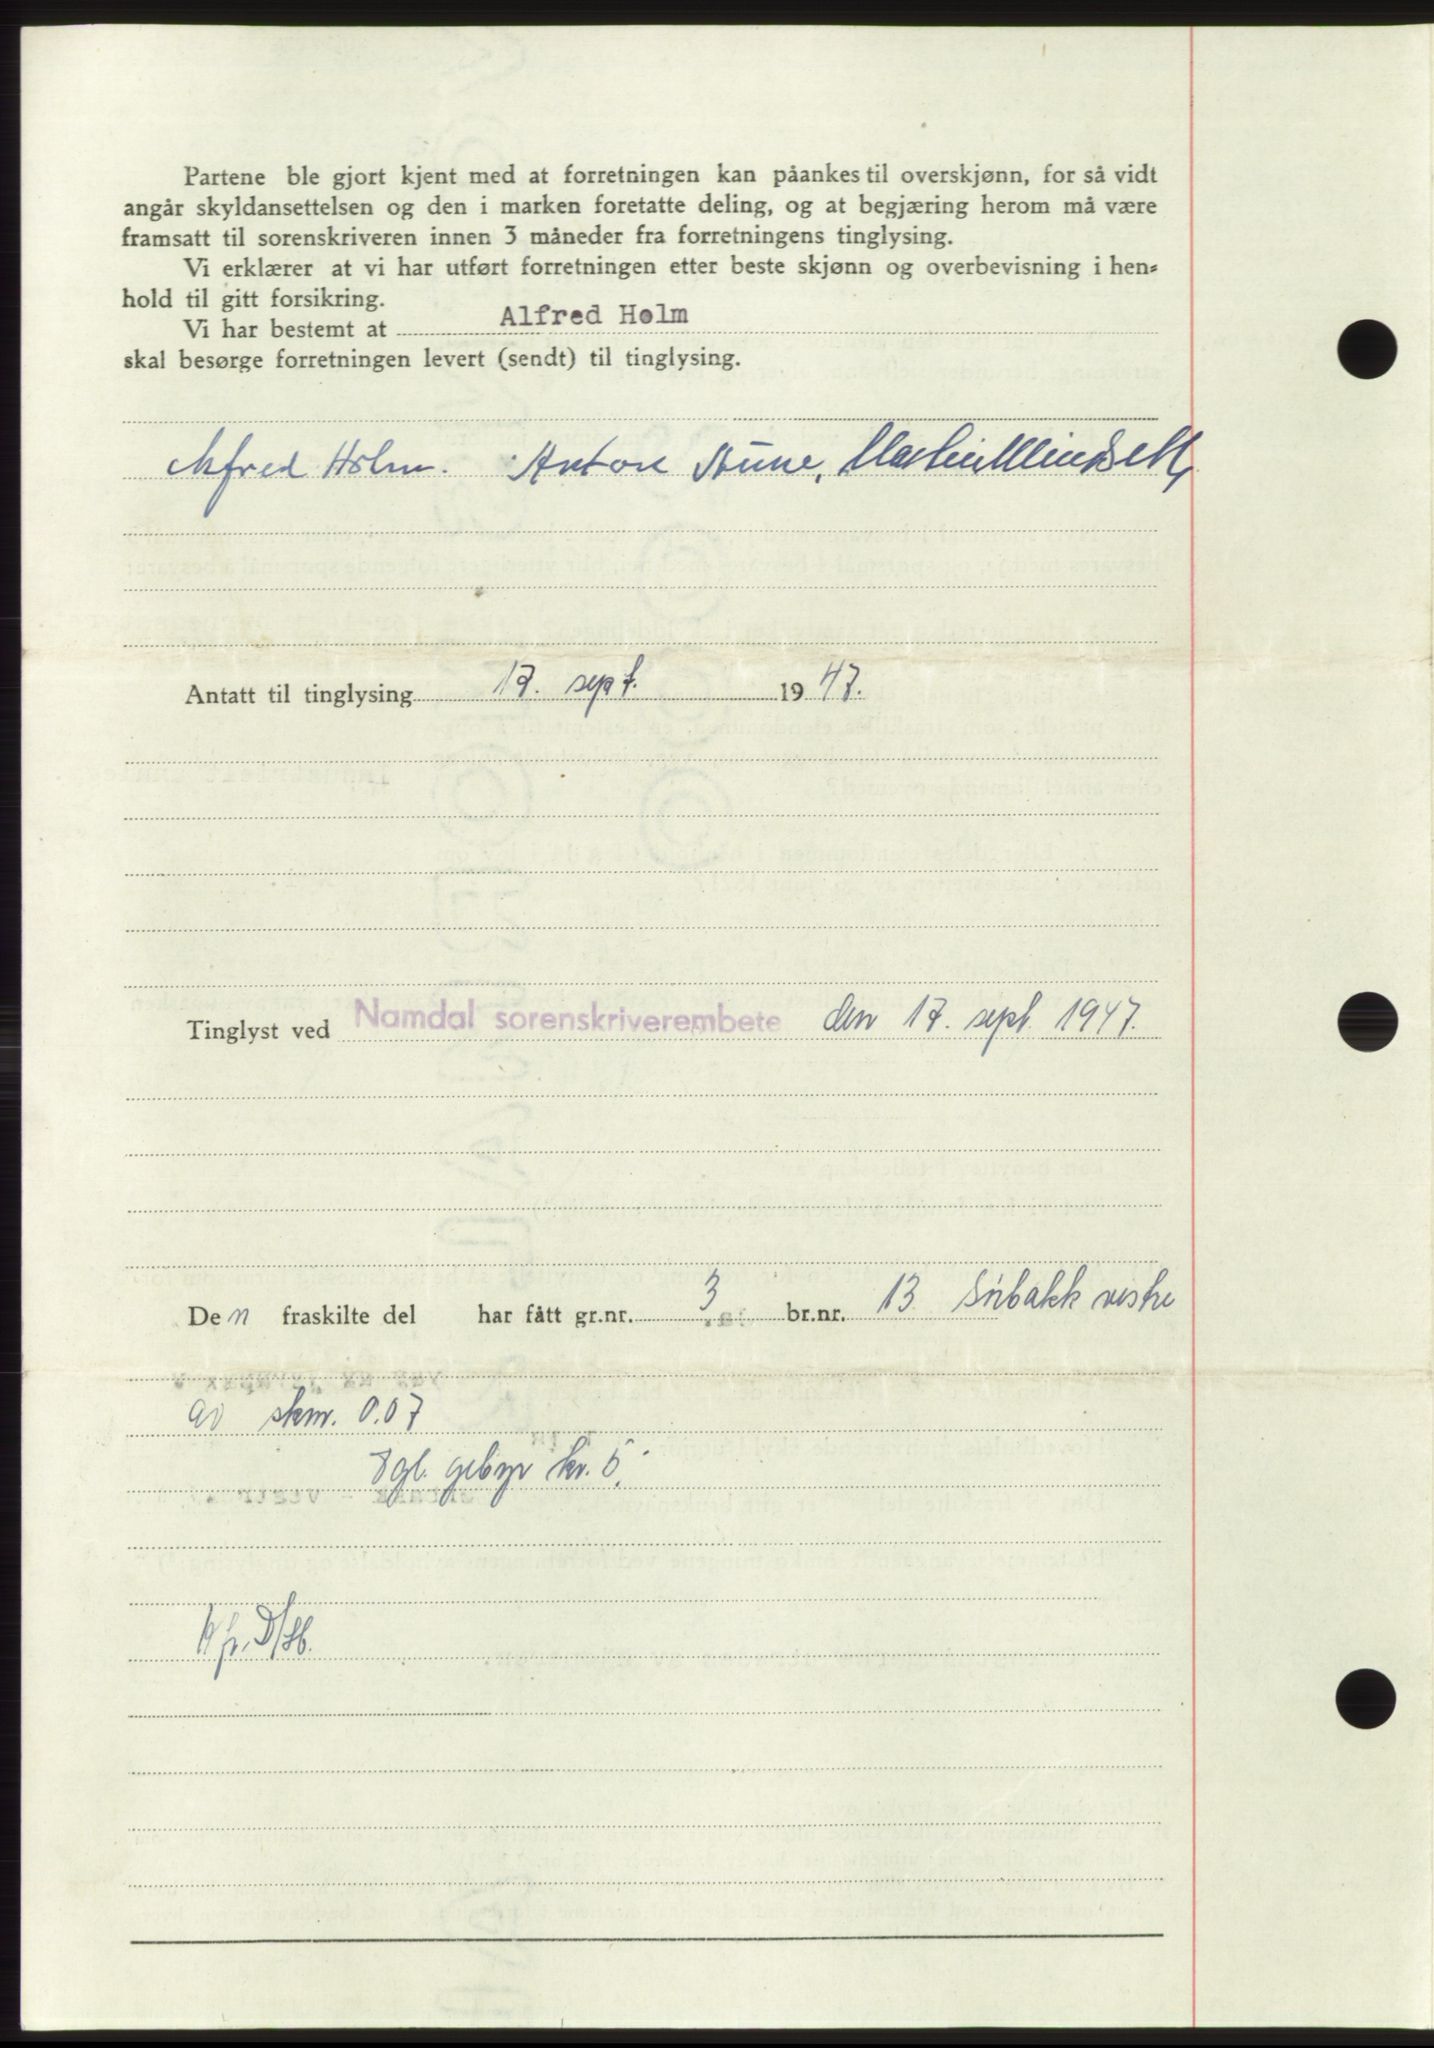 Partene ble gjort kjent med at forretningen kan påankes til overskjønn, for så vidt
angår skyldansettelsen og den i marken foretatte deling, og at begjæring herom må være
framsatt til sorenskriveren innen 3 måneder fra forretningens tinglysing.
Vi erklærer at vi har utført forretningen etter beste skjønn og overbevisning i hen-
hold til gitt forsikring.
Vi har bestemt at Alfred Holm
skal besørge forretningen levert (sendt) til tinglysing.
Alfred Holm. Anton
Antatt til tinglysing 17. sept. 1947.
Tinglyst ved Namdal sorenskriverembete den 17. sept. 1947.
De n fraskilte del har fått gr.nr. 3 br.nr. 13
av skm. 0.07
Tgl. gebyr kr. 5.